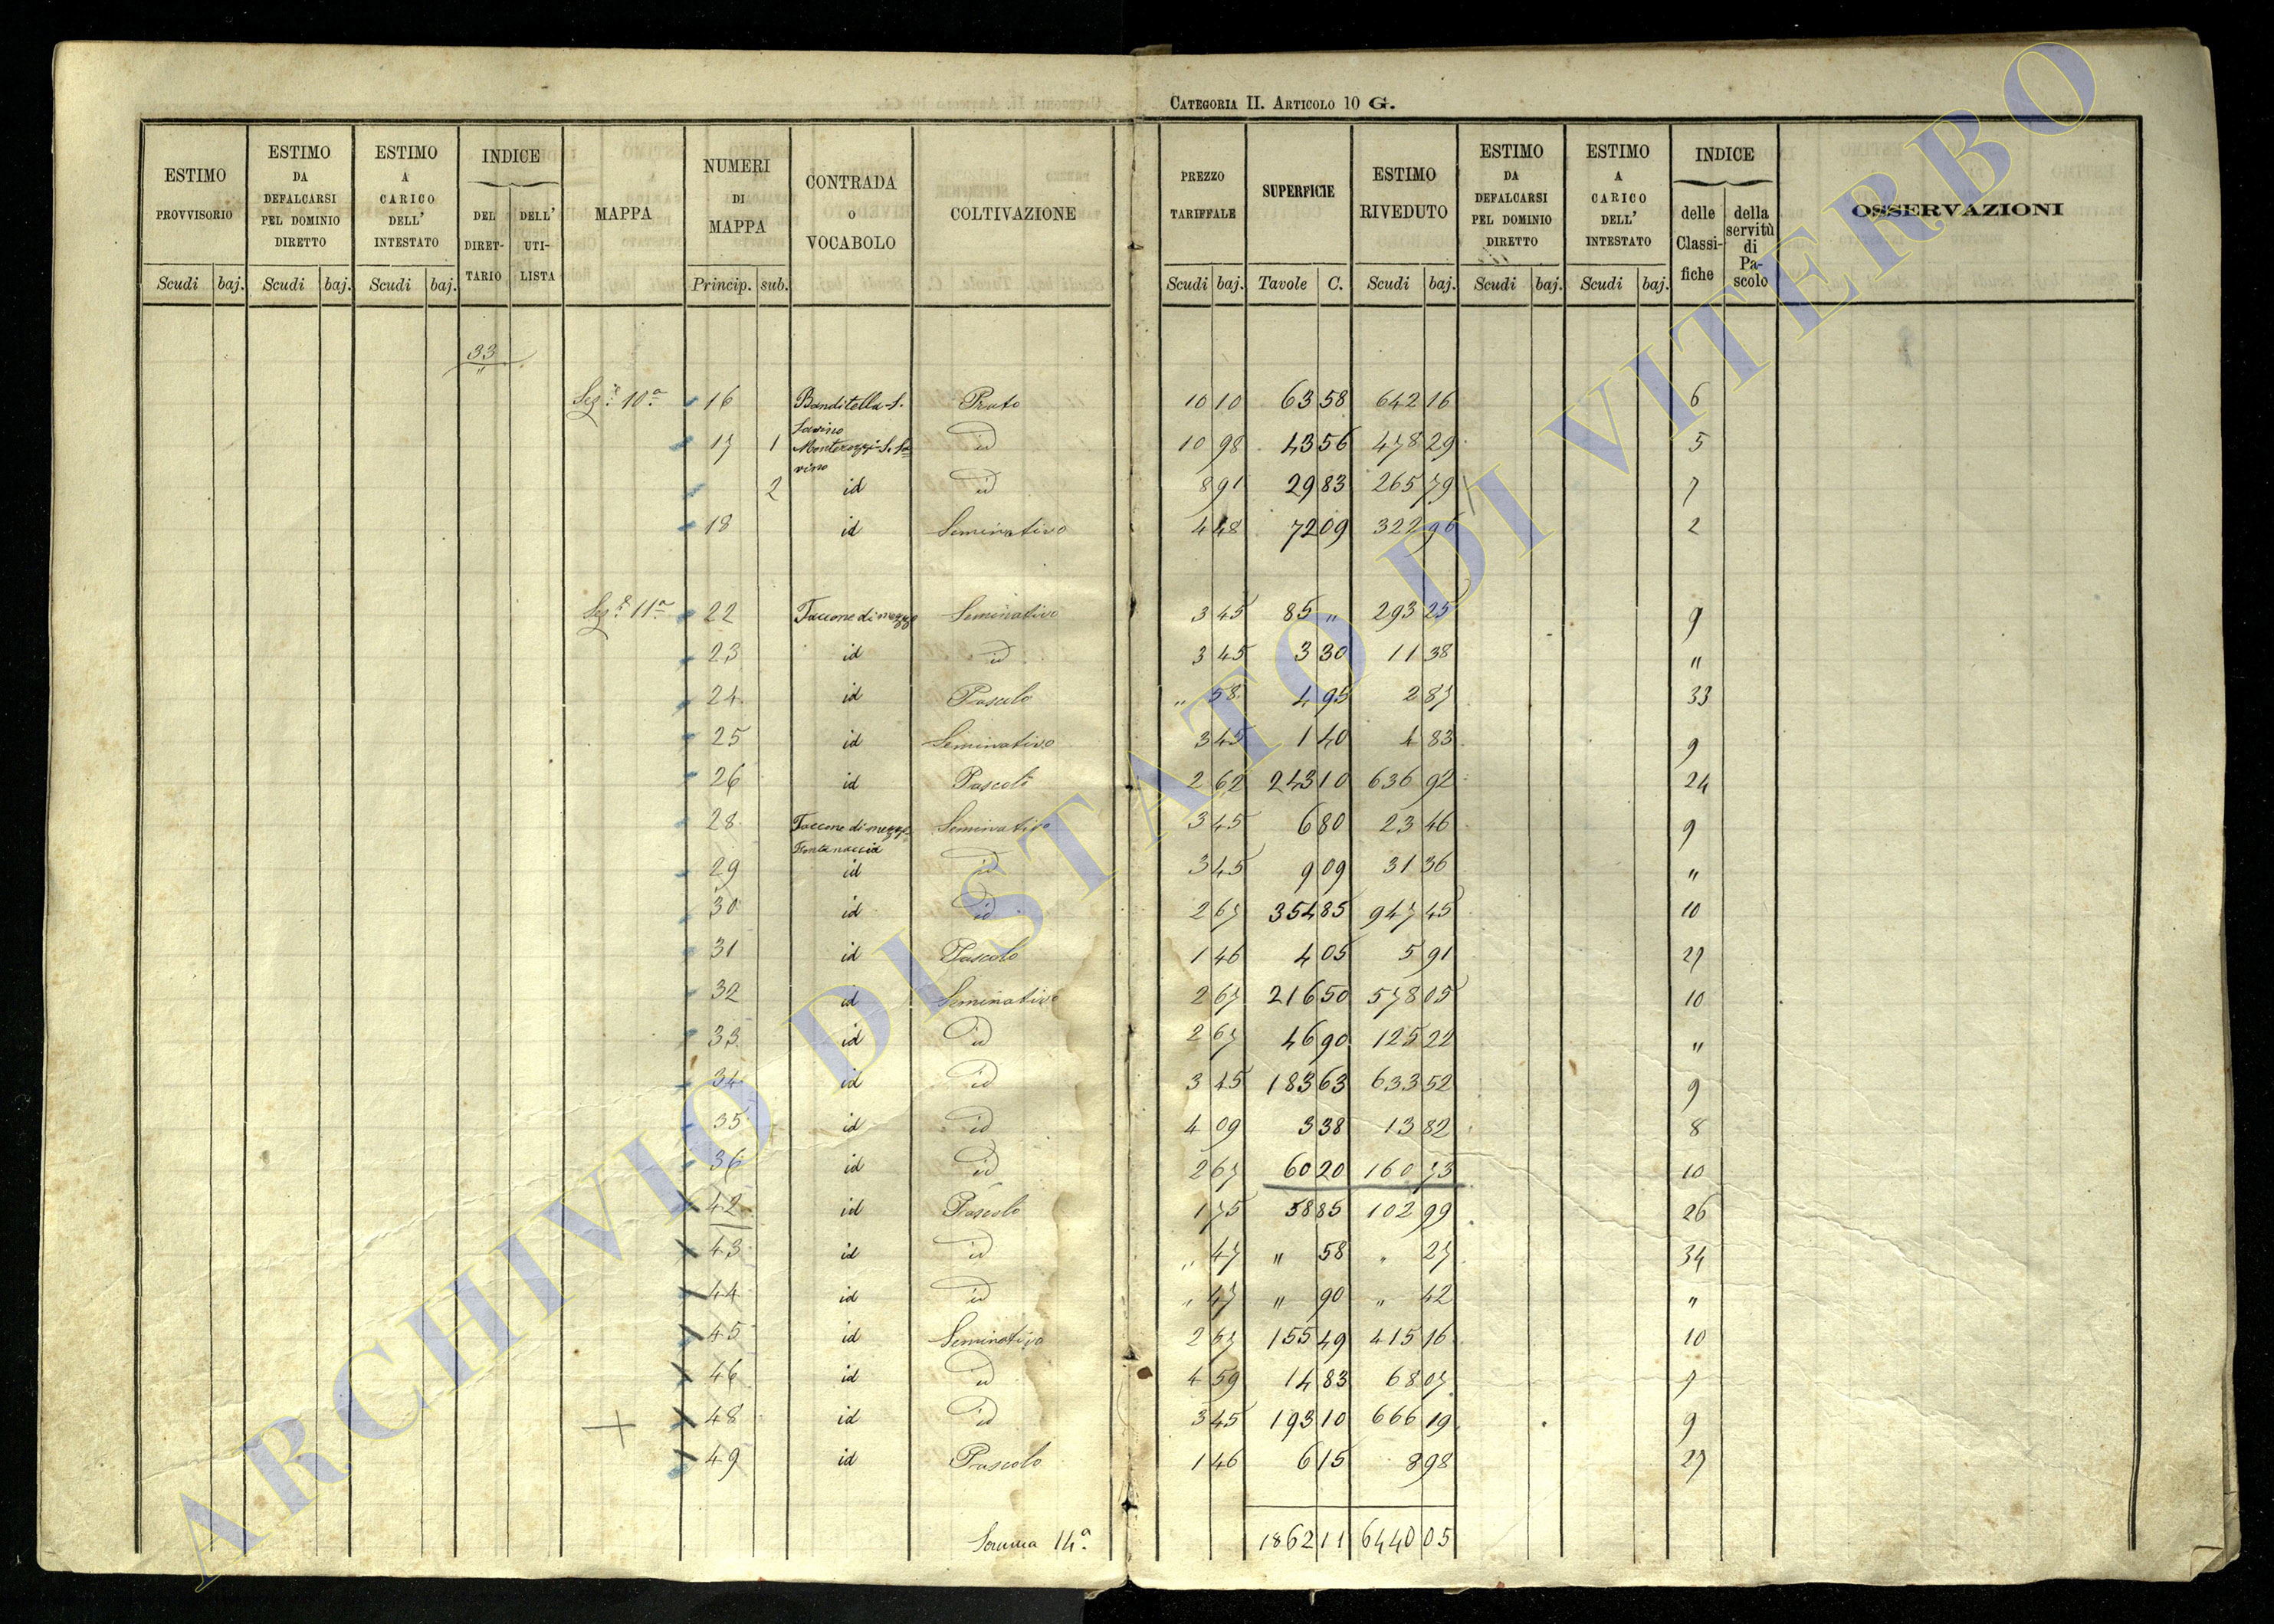 CATEGORIA II. ARTICOLO 10 G.
ESTIMO PROVVISORIO Scudi baj.
ESTIMO DA DEFALCARSI PEL DOMINIO DIRETTO Scudi baj.
ESTIMO A CARICO DELL' INTESTATO Scudi baj.
INDICE DEL DIRETTARIO DELL' UTILISTA
MAPPA
NUMERI DI MAPPA Princip. sub.
CONTRADA O VOCABOLO
COLTIVAZIONE
PREZZO TARIFFALE Scudi baj.
SUPERFICIE Tavole C.
ESTIMO RIVEDUTO Scudi baj.
ESTIMO DA DEFALCARSI PEL DOMINIO DIRETTO Scudi baj.
ESTIMO A CARICO DELL' INTESTATO Scudi baj.
INDICE delle Classifiche della servitù di Pascolo
OSSERVAZIONI
33
Sez.e 10.a 16 Banditella-S. Savino Prato 10 10 63 58 642 16 6
17 1 Monterozzi-S. Savino id 10 98 43 56 478 29 5
2 id id 8 91 29 83 265 79 7
18 id Seminativo 4 48 72 09 322 96 2
Sez.e 11.a 22 Taccone di mezzo Seminativo 3 45 85 " 293 25 9
23 id id 3 45 3 30 11 38 "
24 id Pascolo " 58 4 95 2 87 33
25 id Seminativo 3 45 1 40 4 83 9
26 id Pascolo 2 62 243 10 636 92 24
28 Taccone di mezzo Fontanaccia Seminativo 3 45 6 80 23 46 9
29 id id 3 45 9 09 31 36 "
30 id id 2 67 354 85 947 45 10
31 id Pascolo 1 46 4 05 5 91 27
32 id Seminativo 2 67 216 50 578 05 10
33 id id 2 67 46 90 125 22 "
34 id id 3 45 183 63 633 52 9
35 id id 4 09 3 38 13 82 8
36 id id 2 67 60 20 160 73 10
42 id Pascolo 1 75 58 85 102 99 26
43 id id " 47 " 58 " 27 34
44 id id " 47 " 90 " 42 "
45 id Seminativo 2 67 155 49 415 16 10
46 id id 4 59 14 83 68 07 7
48 id id 3 45 193 10 666 19 9
49 id Pascolo 1 46 6 15 8 98 27
Somma 14.a 1862 11 6440 05
ARCHIVIO DI STATO DI VITERBO